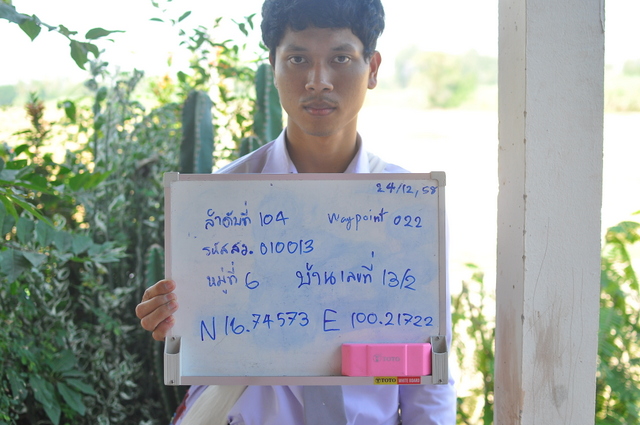 24/12, 58
ลำดับที่ 104 Waypoint 022
รหัสสว. 010013
หมู่ที่ 6 บ้านเลขที่ 13/2
N 16.74573 E 100.21722
TOTO WHITE BOARD